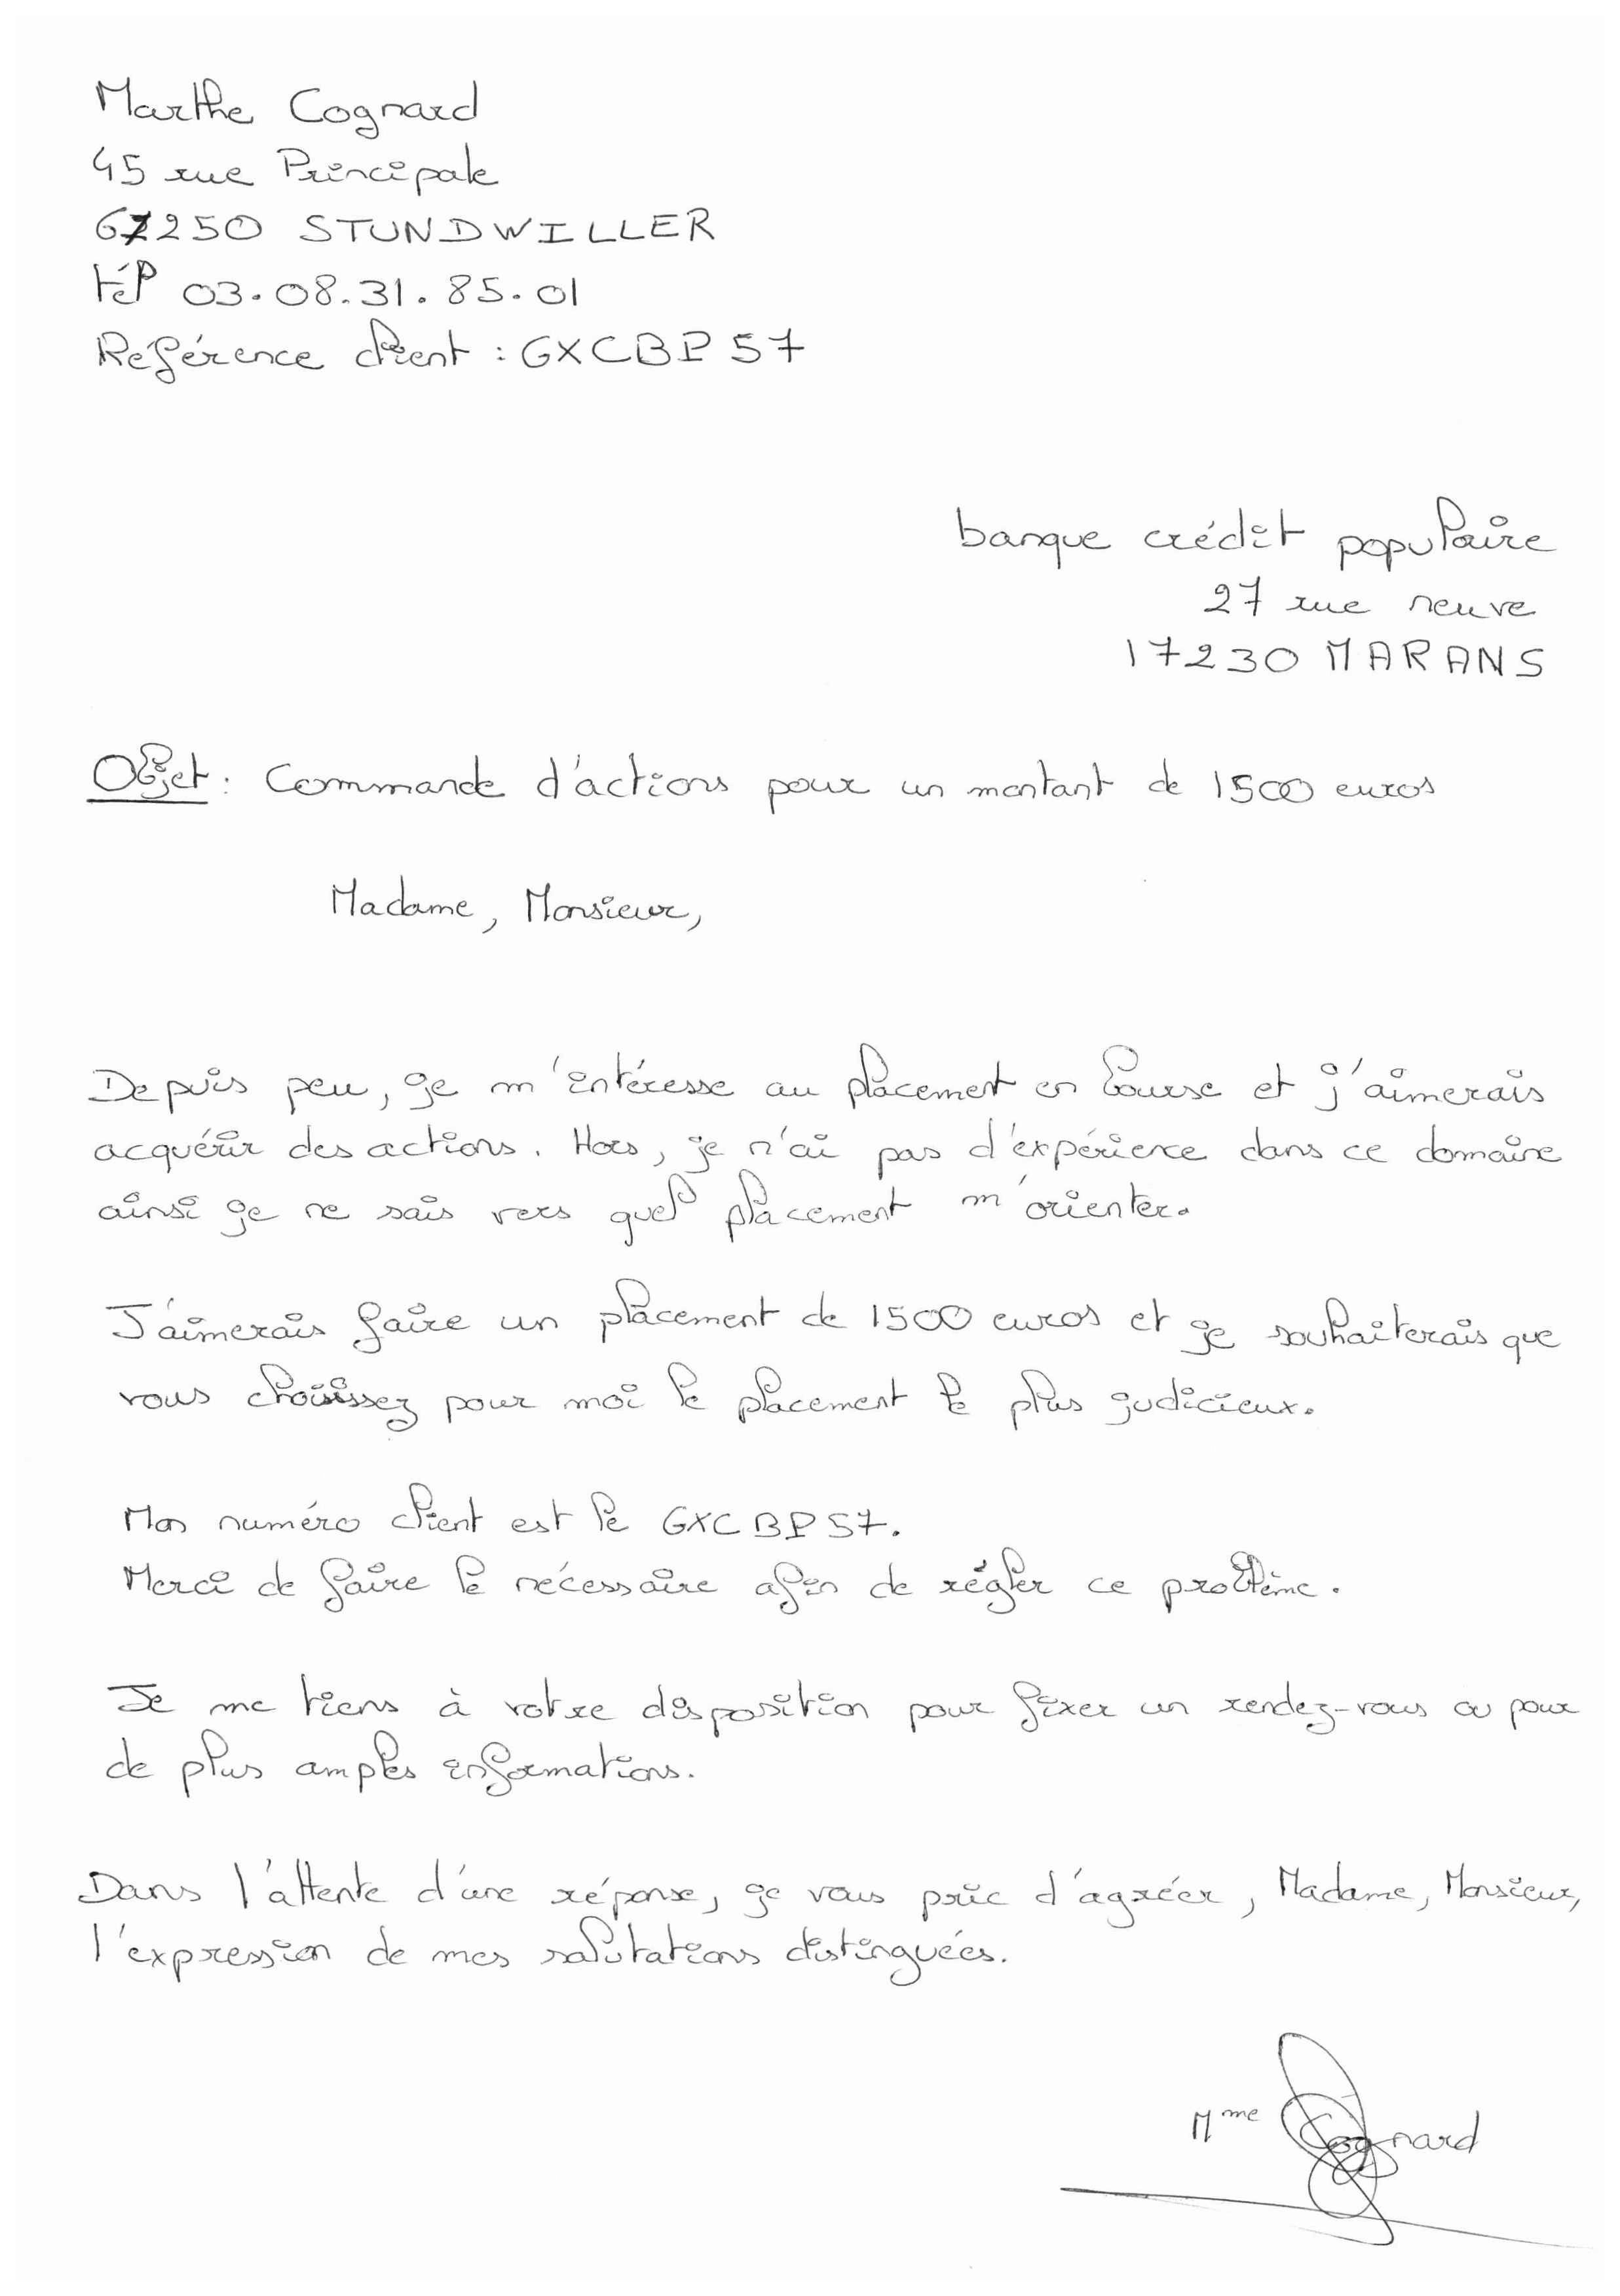 Marthe Cognard
45 rue Principale
67250 STUNDWILLER
tél 03.08.31.85.01
Référence client : GXCBP57
banque crédit populaire
27 rue neuve
17230 MARANS
Objet : Commande d'actions pour un montant de 1500 euros
Madame, Monsieur,
Depuis peu, je m'intéresse au placement en bourse et j'aimerais
acquérir des actions. Hors, je n'ai pas d'expérience dans ce domaine
ainsi je ne sais vers quel placement m'orienter.
J'aimerais faire un placement de 1500 euros et je souhaiterais que
vous choisissez pour moi le placement le plus judicieux.
Mon numéro client est le GXCBP57.
Merci de faire le nécessaire afin de régler ce problème.
Je me tiens à votre disposition pour fixer un rendez-vous ou pour
de plus amples informations.
Dans l'attente d'une réponse, je vous prie d'agréer, Madame, Monsieur,
l'expression de mes salutations distinguées.
Mme Cognard